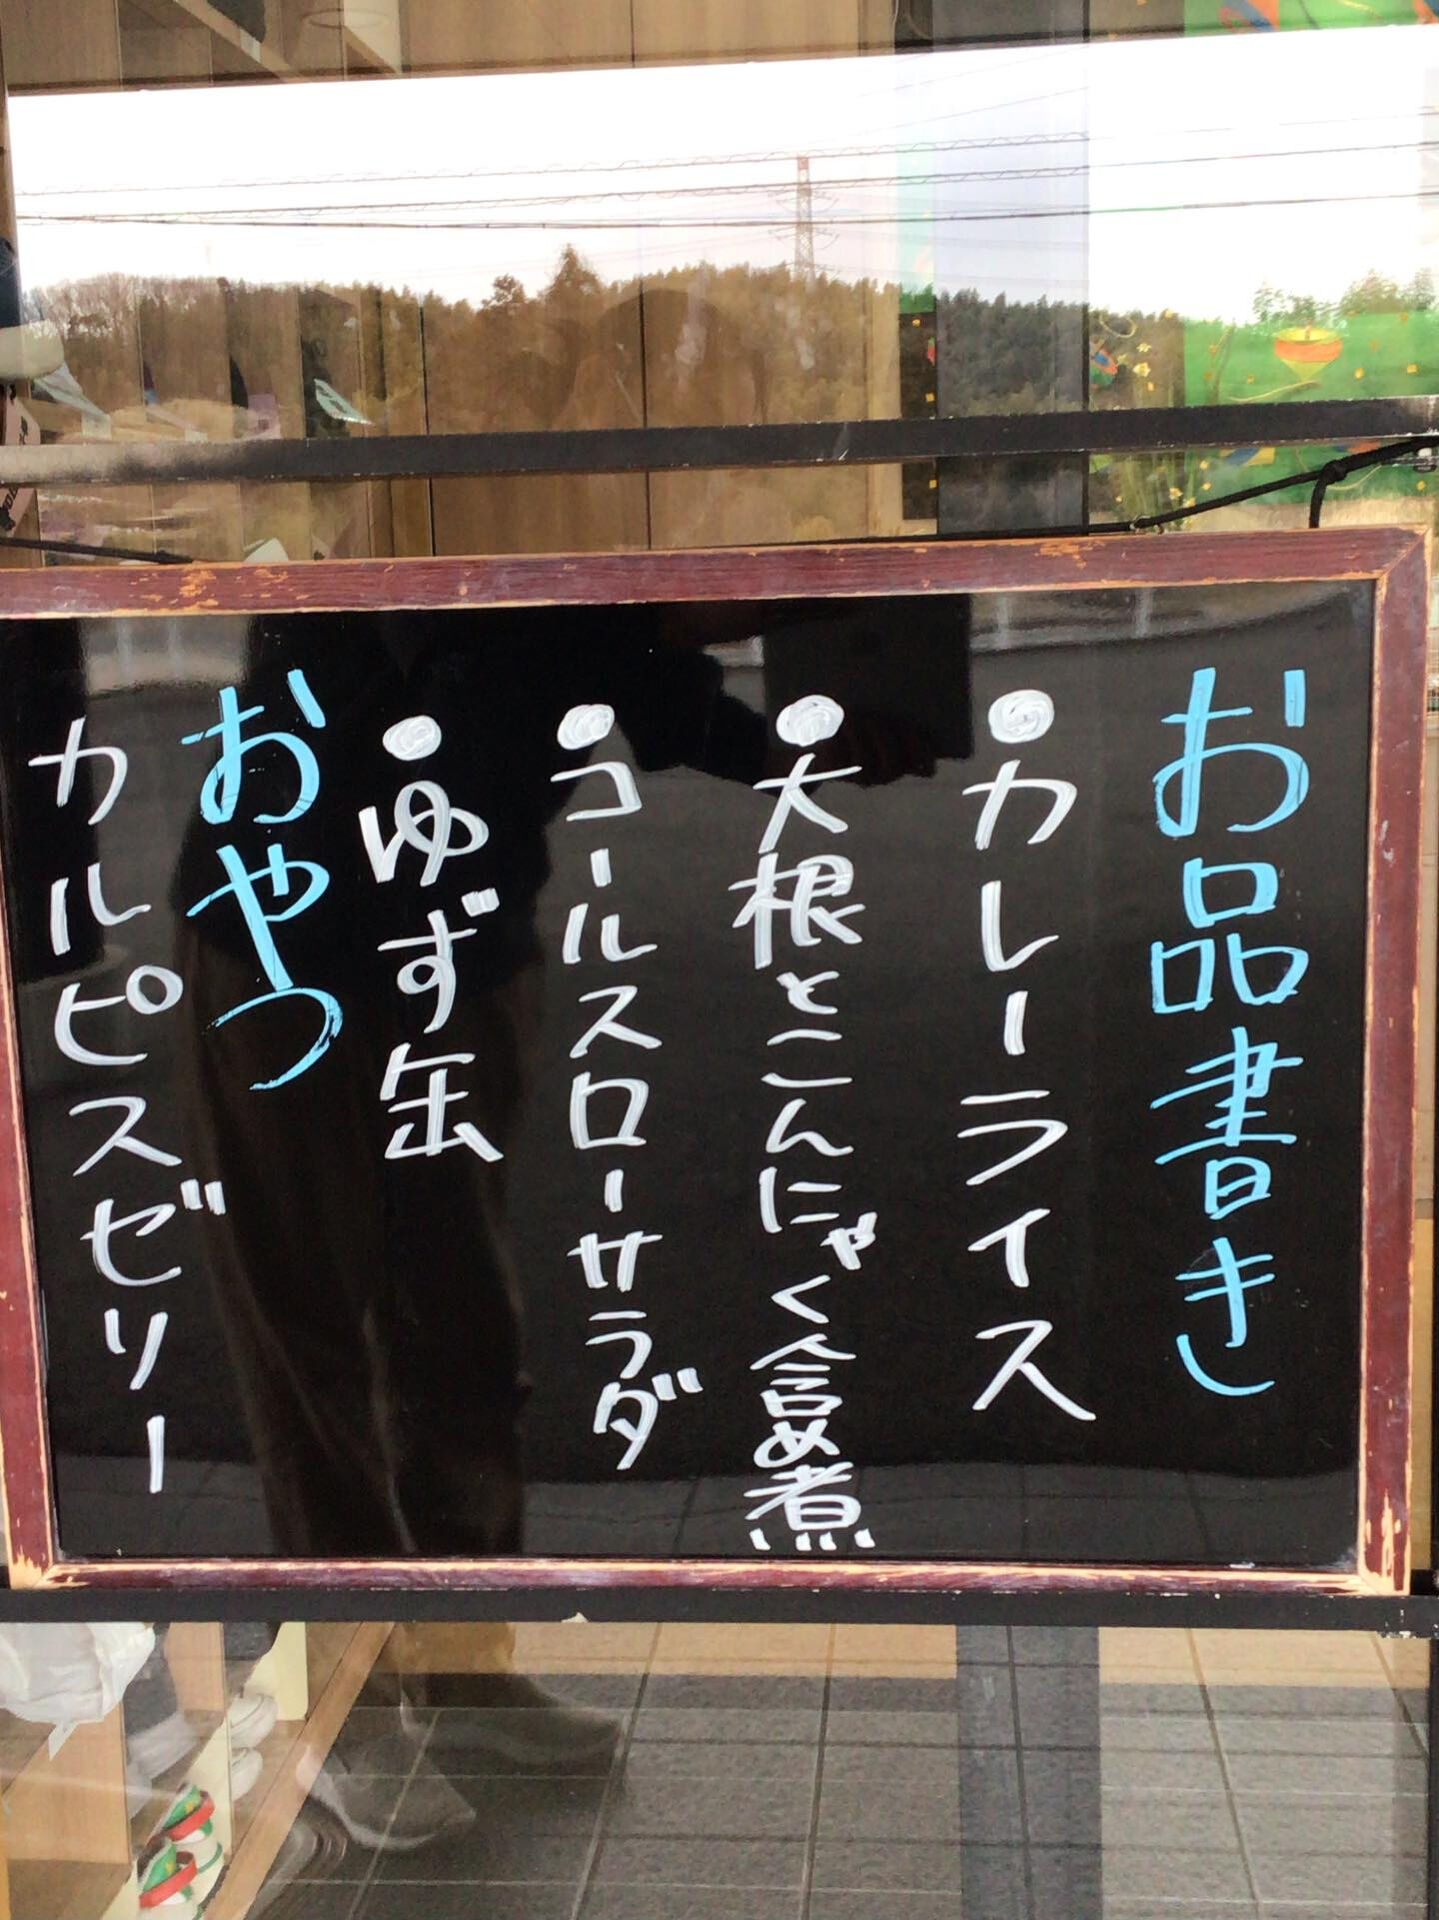 お品書き
●カレーライス
●大根とこんにゃく含め煮
●コールスローサラダ
●ゆず缶
おやつ
カルピスゼリー